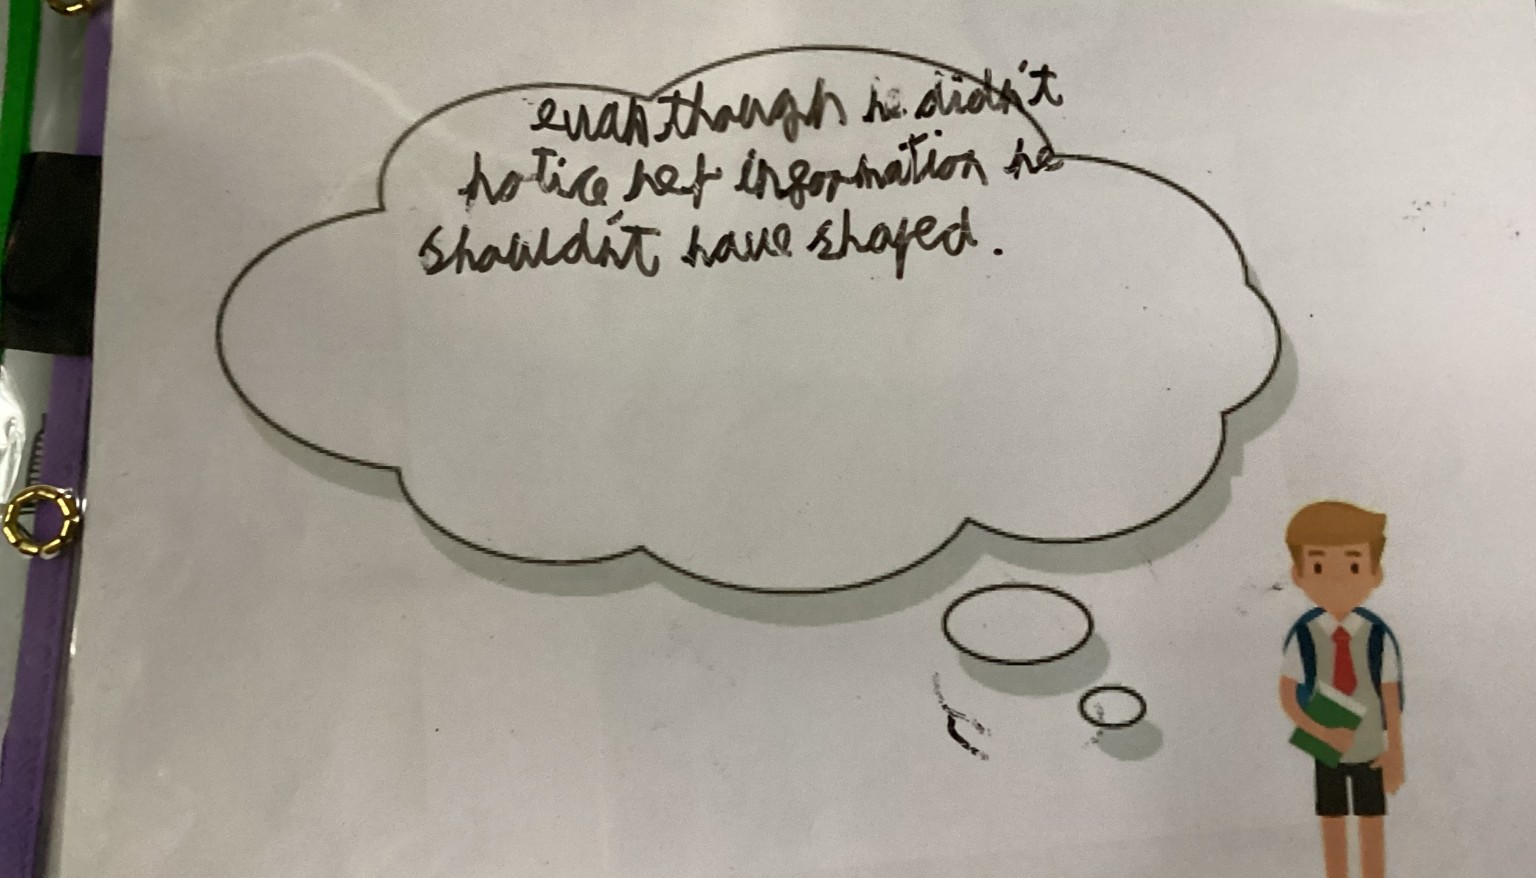 even though he didn't
notice her information he
shouldn't have shared.